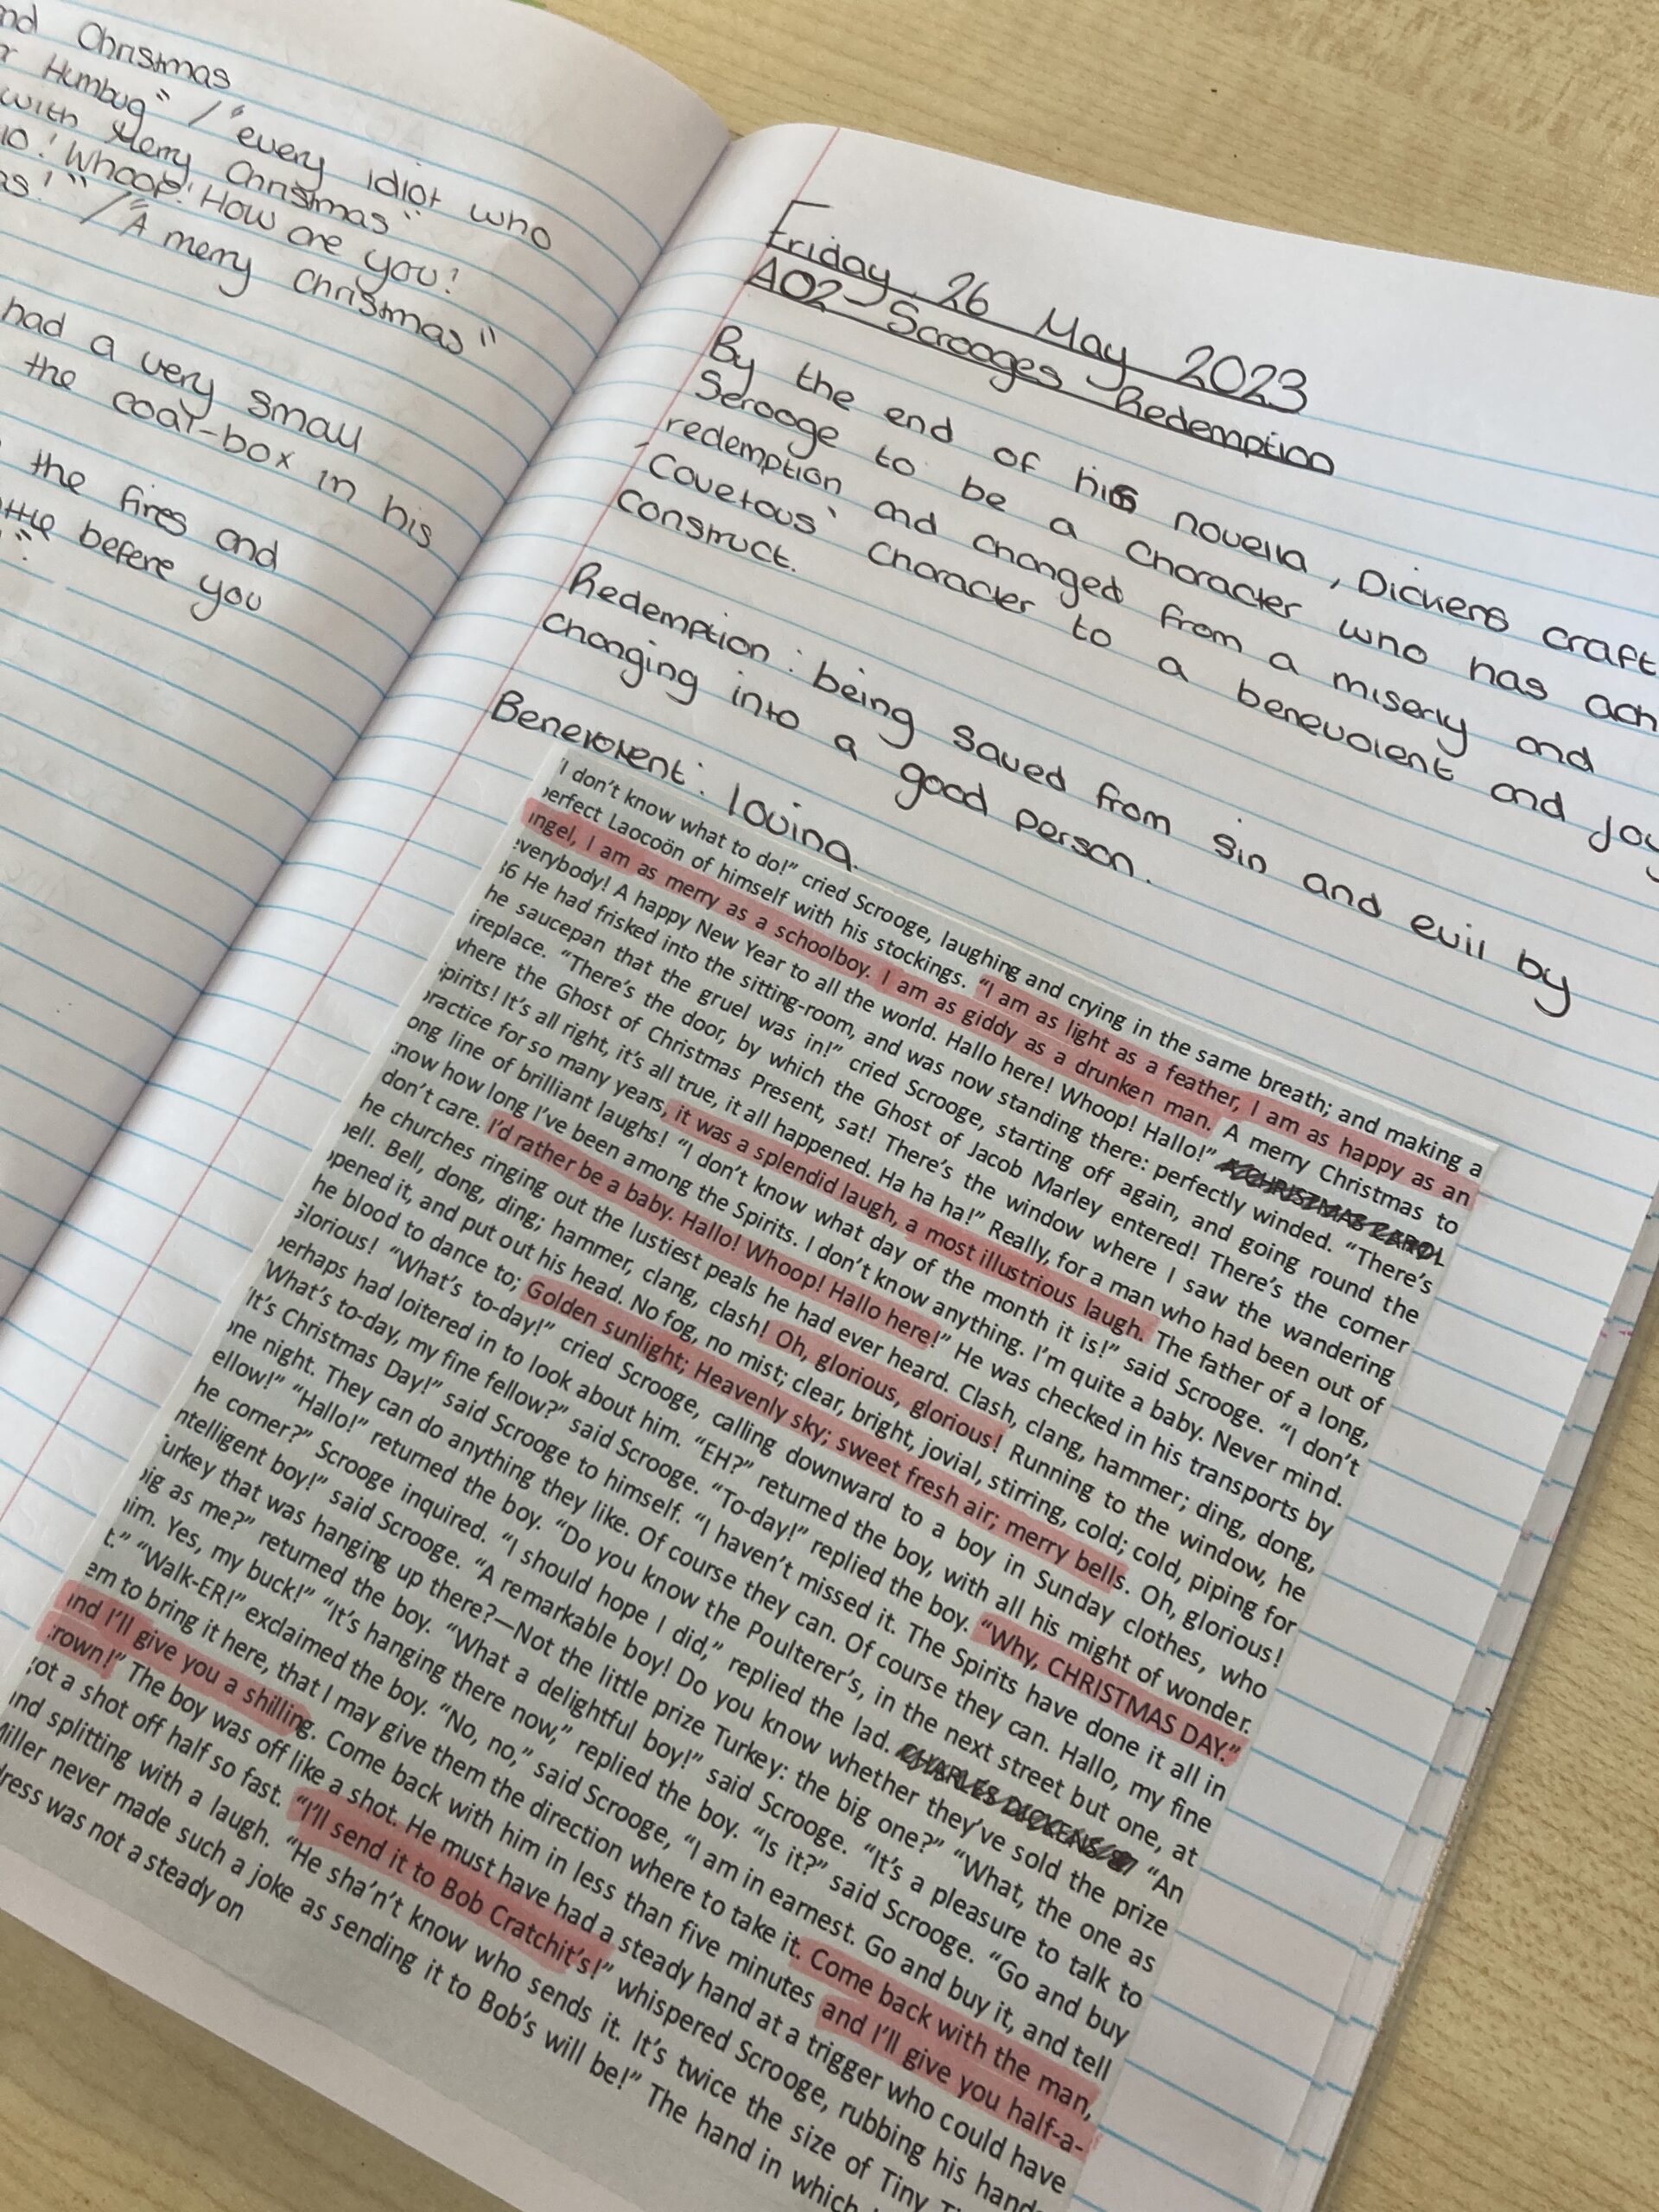 nd Christmas
r Humbug" / "every idiot who
with Merry Christmas"
lo! Whoop! How are you!
as!" / "A merry Christmas"
had a very small
the coal-box in his
the fires and
ttle before you
Friday 26 May 2023
AO2 - Scrooges Redemption
By the end of his novella, Dickens craft
Scrooge to be a character who has ach
redemption and changed from a miserly and
'covetous' character to a benevolent and joy
construct.
Redemption: being saved from sin and evil by
changing into a good person.
Benevolent: loving.
'I don't know what to do!" cried Scrooge, laughing and crying in the same breath; and making a
perfect Laocoön of himself with his stockings. "I am as light as a feather, I am as happy as an
angel, I am as merry as a schoolboy. I am as giddy as a drunken man. A merry Christmas to
everybody! A happy New Year to all the world. Hallo here! Whoop! Hallo!" A CHRISTMAS CAROL
86 He had frisked into the sitting-room, and was now standing there: perfectly winded. "There's
he saucepan that the gruel was in!" cried Scrooge, starting off again, and going round the
ireplace. "There's the door, by which the Ghost of Jacob Marley entered! There's the corner
where the Ghost of Christmas Present, sat! There's the window where I saw the wandering
Spirits! It's all right, it's all true, it all happened. Ha ha ha!" Really, for a man who had been out of
practice for so many years, it was a splendid laugh, a most illustrious laugh. The father of a long,
ong line of brilliant laughs! "I don't know what day of the month it is!" said Scrooge. "I don't
know how long I've been among the Spirits. I don't know anything. I'm quite a baby. Never mind.
don't care. I'd rather be a baby. Hallo! Whoop! Hallo here!" He was checked in his transports by
he churches ringing out the lustiest peals he had ever heard. Clash, clang, hammer; ding, dong,
bell. Bell, dong, ding; hammer, clang, clash! Oh, glorious, glorious! Running to the window, he
opened it, and put out his head. No fog, no mist; clear, bright, jovial, stirring, cold; cold, piping for
he blood to dance to; Golden sunlight; Heavenly sky; sweet fresh air; merry bells. Oh, glorious!
Glorious! "What's to-day!" cried Scrooge, calling downward to a boy in Sunday clothes, who
perhaps had loitered in to look about him. "EH?" returned the boy, with all his might of wonder.
'What's to-day, my fine fellow?" said Scrooge. "To-day!" replied the boy. "Why, CHRISTMAS DAY."
'It's Christmas Day!" said Scrooge to himself. "I haven't missed it. The Spirits have done it all in
one night. They can do anything they like. Of course they can. Of course they can. Hallo, my fine
ellow!" "Hallo!" returned the boy. "Do you know the Poulterer's, in the next street but one, at
he corner?" Scrooge inquired. "I should hope I did," replied the lad. CHARLES DICKENS 87 "An
ntelligent boy!" said Scrooge. "A remarkable boy! Do you know whether they've sold the prize
Turkey that was hanging up there?—Not the little prize Turkey: the big one?" "What, the one as
big as me?" returned the boy. "What a delightful boy!" said Scrooge. "It's a pleasure to talk to
him. Yes, my buck!" "It's hanging there now," replied the boy. "Is it?" said Scrooge. "Go and buy
t." "Walk-ER!" exclaimed the boy. "No, no," said Scrooge, "I am in earnest. Go and buy it, and tell
em to bring it here, that I may give them the direction where to take it. Come back with the man,
and I'll give you a shilling. Come back with him in less than five minutes and I'll give you half-a-
crown!" The boy was off like a shot. He must have had a steady hand at a trigger who could have
got a shot off half so fast. "I'll send it to Bob Cratchit's!" whispered Scrooge, rubbing his hand
nd splitting with a laugh. "He sha'n't know who sends it. It's twice the size of Tiny Ti
Miller never made such a joke as sending it to Bob's will be!" The hand in which
ress was not a steady on